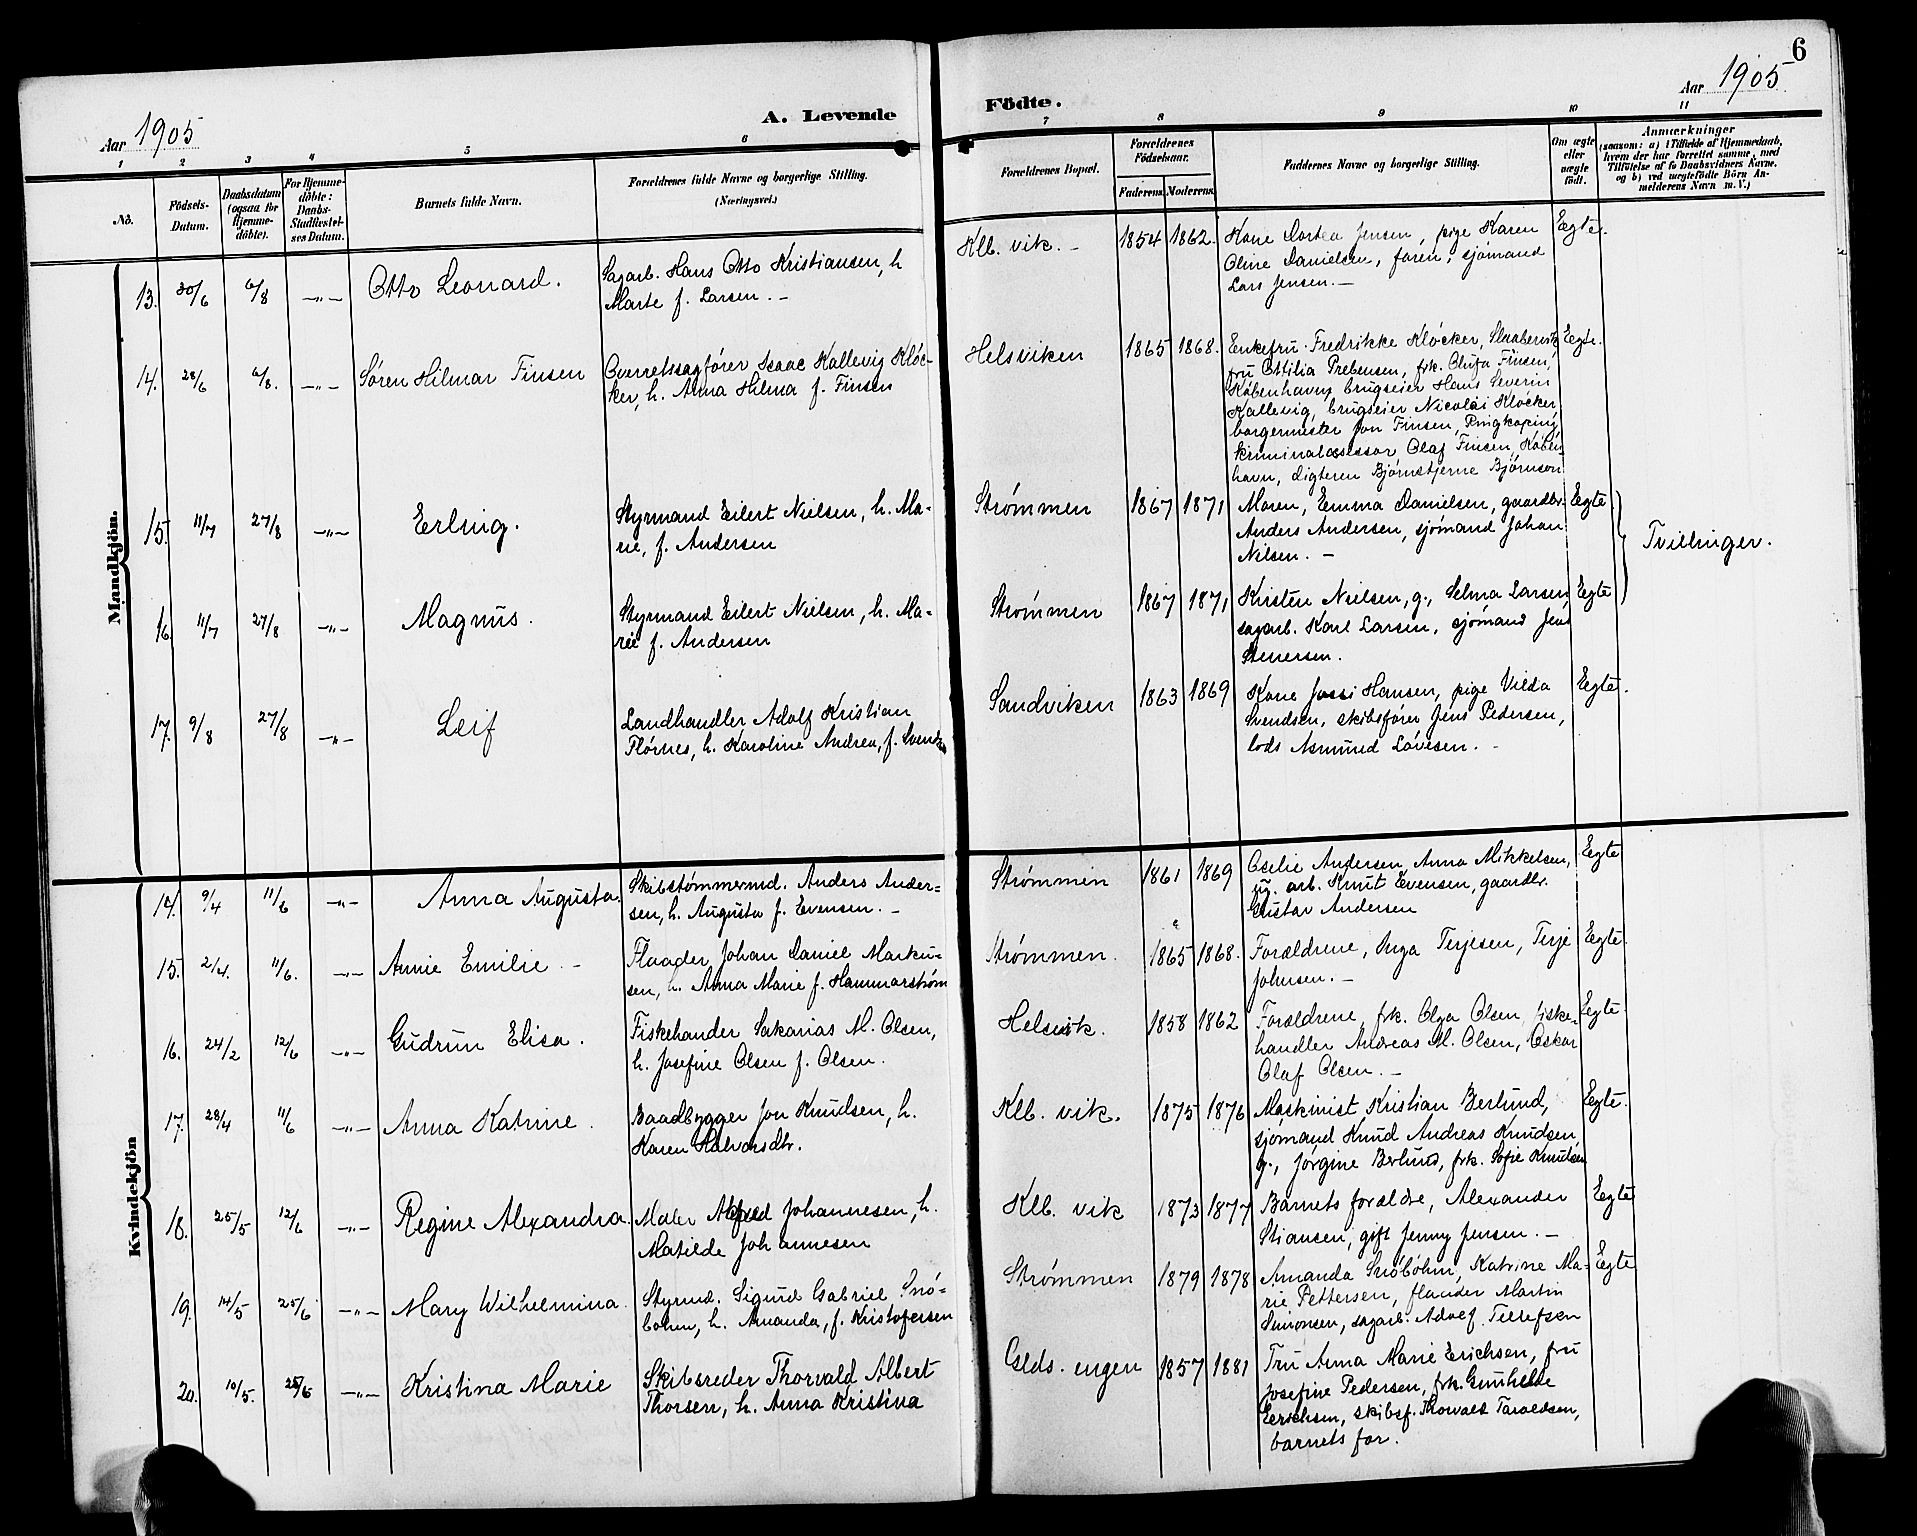 6
Aar 1905
A. Levende
Födte.
Aar 1905
1 2 3 4 5 6 7 8 9 10 11
No.
Födsels-
Datum.
Daabsdatum
(ogsaa for
Hjemme-
døbte).
For Hjemme-
døbte:
Daabs-
Stadfæstel-
ses Datum.
Barnets fulde Navn.
Forældrenes fulde Navne og borgerlige Stilling.
(Næringsvei.)
Forældrenes Bopæl.
Forældrenes
Födselsaar.
Faderens. Moderens.
Faddernes Navne og borgerlige Stilling.
Om ægte
eller
uægte
født.
Anmærkninger
(saasom: a) i Tilfælde af Hjemmedaab,
hvem der har forrettet samme, med
Tilföielse af to Daabsvidners Navne.
og b) ved uægtefödte Börn An-
melderens Navn m. V.)
Mandkjön.
13. 30/6 6/8 —"— Otto Leonard.
Sagarb. Hans Otto Kristiansen, h
Marte f. Larsen. —
Klb. vik. — 1854 1862.
Kone Dortea Jensen, pige Karen
Oline Danielsen, faren, sjømand
Lars Jensen. —
Egte.
14. 28/6 6/8. —"— Søren Hilmar Finsen
Overretssagfører Isaac Kallevig Kløc-
ker, h. Anna Hilma f. Finsen
Helsviken 1865 1868.
Enkefru Fredrikke Kløcker,
fru Ottilia Prebensen, frk. Olufa Finsen,
Københavns brugseier Hans Severin
Kallevig, brugseier Nicolai Kløcker,
borgermester Jon Finsen, Ringkøping,
kriminalassessor Olaf Finsen, Køben-
havn, digteren Bjørnstjerne Bjørnson
Egte.
15. 11/7 27/8 —"— Erling.
Styrmand Eilert Nielsen, h. Ma-
rie, f. Andersen
Strømmen 1867 1871
Moren, Emma Danielsen, gaardbr.
Anders Andersen, sjømand Johan
Nilsen. —
Egte
Tvillinger.
16. 11/7 27/8 —"— Magnus.
Styrmand Eilert Nielsen, h. Ma-
rie f. Andersen
Strømmen 1867 1871
Kirsten Nielsen, g., Selma Larsen
sagarb. Karl Larsen, sjømand Jens
Stenersen.
Egte
17. 9/8 27/8 —"— Leif
Landhandler Adolf Kristian
Flørnes, h. Karoline Andrea, f. Svends
Sandviken 1863 1869
Kone Jossi Hansen, pige Vilda
Svendsen, skibsfører Jens Pedersen,
lods Asmund Løvesen. —
Egte.
Kvindekjön
14. 9/4 11/6 —"— Anna Augusta.
Skibstømmermd. Anders Ander-
sen, h. Augusta f. Evensen. —
Strømmen 1861 1869
Oselie Andersen, Anna Mikkelsen,
ug. arb. Knut Evensen, gaardbr.
Gustav Andersen
Egte
15. 2/4. 11/6. —"— Annie Emilie —
Flaader Johan Daniel Marku-
sen, h. Anna Marie f. Hammarstrøm
Strømmen. 1865 1868.
Forældrene, Inga Terjesen, Terje
Johnsen. —
Egte.
16. 24/2 12/6 —"— Gudrun Elisa.
Fiskehander Sakarias M. Olsen,
h. Josefine Olsen f. Olsen.
Helsvik. 1858 1862
Forældrene, frk. Olga Olsen, fiske-
handler Andreas M. Olsen, Oskar
Olaf Olsen. —
Egte.
17. 28/4 11/6 —"— Anna Katrine.
Baadbygger Jon Knudsen, h.
Karen Halvorsdtr.
Klb. vik. 1875 1876
Maskinist Kristian Berlund,
sjømand Knud Andreas Knudsen,
g., Jørgine Berlund, frk. Sofie Knudsen
Egte.
18. 25/5 12/6 —"— Regine Alexandra.
Maler Alfred Johannesen, h.
Matilde Johannesen
Klb. vik 1873 1877
Barnets forældre, Alexander
Stiansen, gift Jenny Jensen. —
Egte
19. 14/5 25/6 —"— Mary Wilhelmina.
Styrmd. Sigurd Gabriel Snø-
bohm, h. Amanda, f. Kristofersen
Strømmen 1879 1878
Amanda Snøbohm, Katrine Ma-
rie Pettersen, flaader Martin
Simonsen, sagarb. Adolf Tellefsen
Egte
20. 10/5. 25/6 —"— Kristina Marie
Skibsreder Thorvald Albert
Thorsen, h. Anna Kristina
Gelds. engen 1857 1881
Fru Anna Marie Erichsen, fru
Josefine Pedersen, frk. Gunhilde
Erichsen, skibsf. Thorvald Taraldsen,
barnets far.